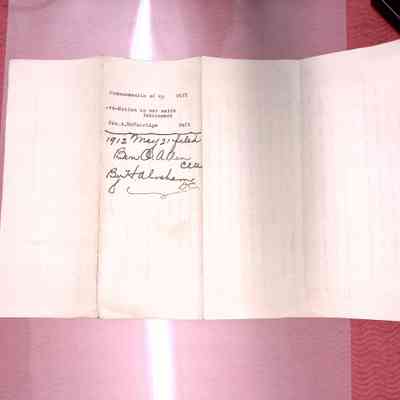 Commonwealth of Ky Plff
vs-Motion to set aside
Indictment
Geo.A.McFarridge Deft
1912 May 21 filed
Ben C. Allen
CACC
By H Abraham
DC